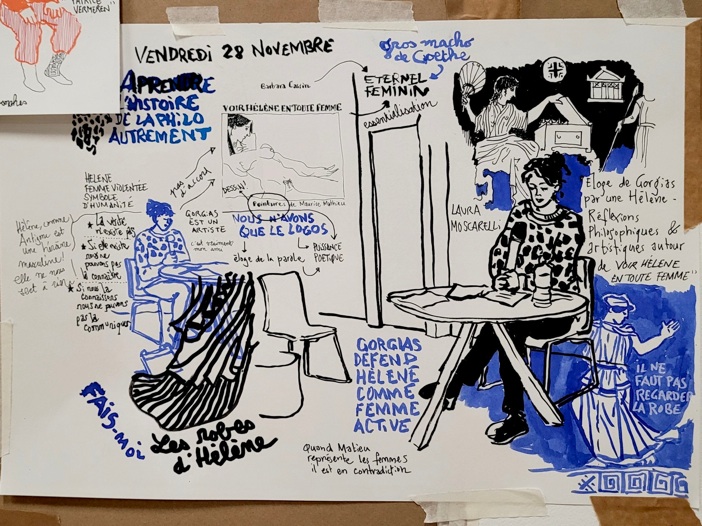 PATRICE
VERMEREN
VENDREDI 28 NOVEMBRE
APRENDRE
L'HISTOIRE
DE LA PHILO
AUTREMENT
Barbara Cassin
gros macho
de Goethe
ETERNEL
FEMININ
essentialisation
VOIR HÉLÈNE EN TOUTE FEMME
DESSIN
Peintures de Maurice Mathieu
pas d'accord
HELENE
FEMME VIOLENTEE
SYMBOLE
D'HUMANITÉ
Hélène, comme
Antigone est
une héroïne
masculine!
Elle ne nous
sert à rien
la vérité
n'existe pas
Si elle existe
nous ne
pouvons pas
la connaître
Si nous la
connaissons
nous ne pouvons
pas la
communiquer
GORGIAS
EST UN
ARTISTE
c'est vraiment
mon ami
NOUS N'AVONS
QUE LE LOGOS
éloge de la parole
PUISSANCE
POÉTIQUE
LAURA
MOSCARELLI
Eloge de Gorgias
par une Hélène -
Réflexions
Philosophiques &
artistiques autour
de "VOIR HÉLÈNE
EN TOUTE FEMME"
GORGIAS
DEFEND
HÉLÈNE
COMME
FEMME
ACTIVE
IL NE
FAUT PAS
REGARDER
LA ROBE
FAIS-MOI
Les robes
d'Hélène
Quand Matieu
représente les femmes
il est en contradiction